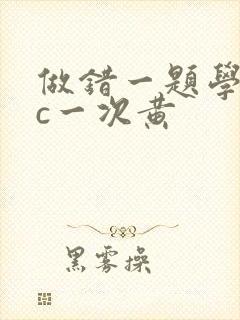 做錯一題學
c一次黃
黑雾操